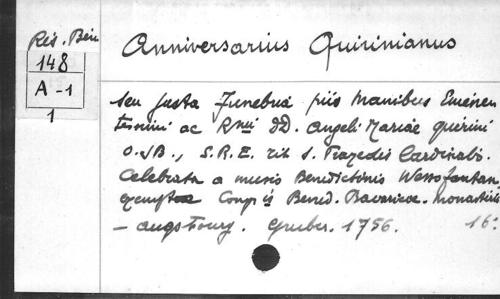 Rés. Bén
148
A-1
1
Anniversarius Quirinianus
seu justa Funebria piis Manibus Eminen
tissimi ac Rmi DD. Angeli Mariae Quirini
O.S.B., S.R.E. tit S. Cardinalis
Celebrata a musis Benedictinis Wessofontan.
exemptae Cong is Bened. Bavaricae. Monasteriis
— Augsbourg. Gruber. 1756. 16: